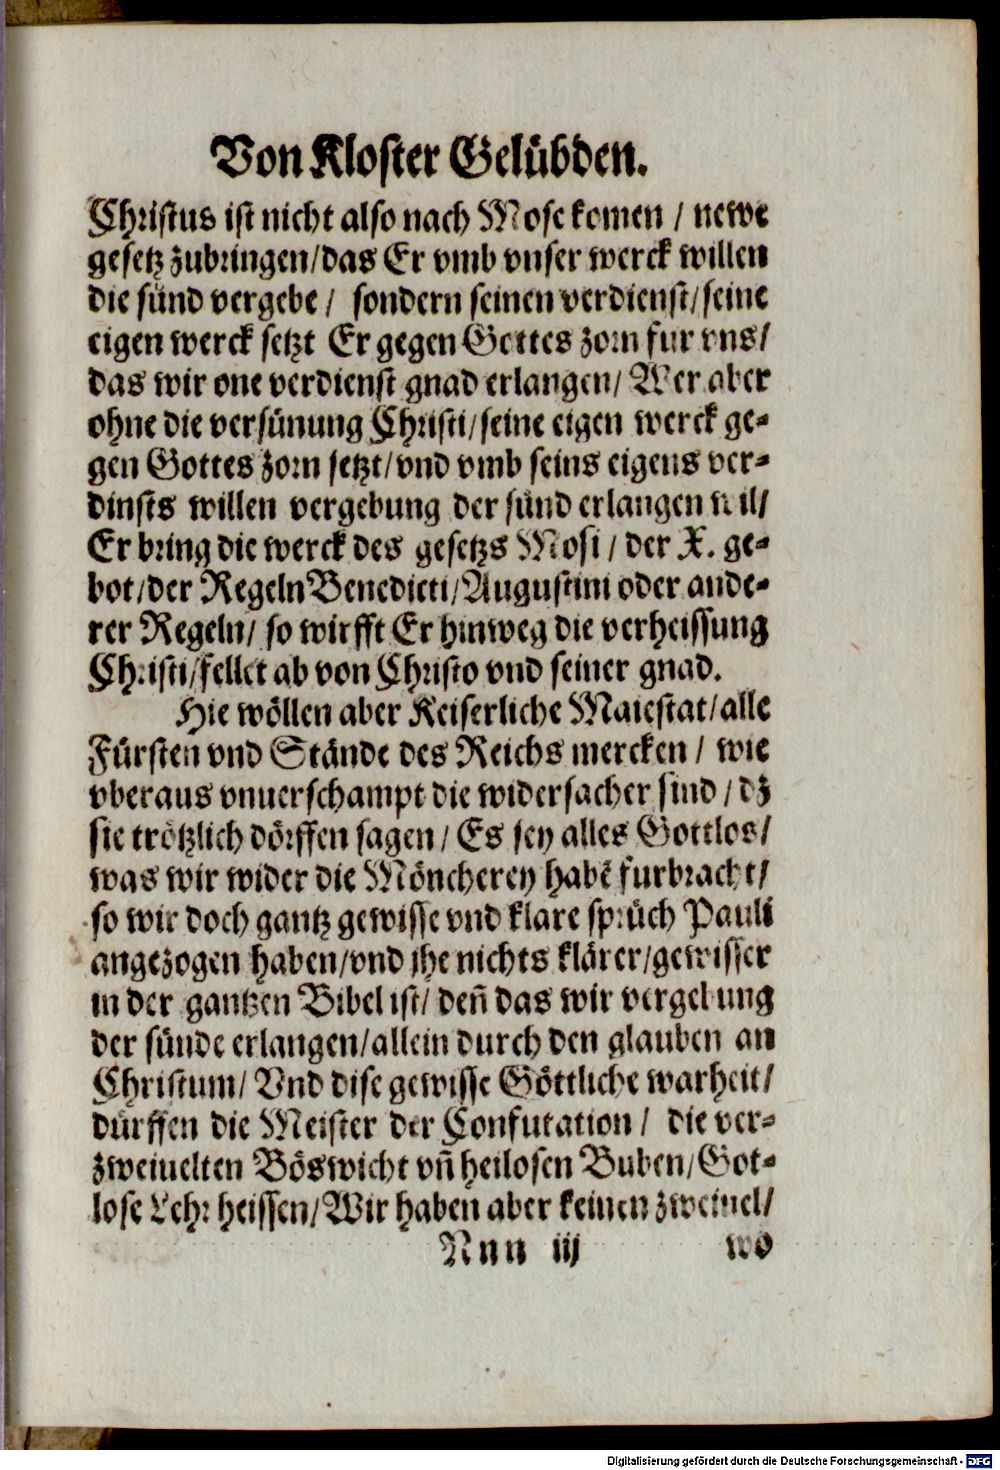 Von Kloster Gelübden.
Christus ist nicht also nach Mose komen / newe
gesetz zubringen/das Er vmb vnser werck willen
die sünd vergebe / sondern seinen verdienst/seine
eigen werck setzt Er gegen Gottes zorn fur vns/
das wir one verdienst gnad erlangen/ Wer aber
ohne die versünung Christi/seine eigen werck ge-
gen Gottes zorn setzt/vnd vmb seins eigens ver-
dinsts willen vergebung der sünd erlangen wil/
Er bring die werck des gesetzs Mosi / der X. ge-
bot/der Regeln Benedicti/Augustini oder ande-
rer Regeln/ so wirfft Er hinweg die verheissung
Christi/fellet ab von Christo vnd seiner gnad.
Hie wöllen aber Keiserliche Maiestat/alle
Fürsten vnd Stände des Reichs mercken / wie
vberaus vnuerschampt die widersacher sind / dz
sie trötzlich dörffen sagen / Es sey alles Gottlos/
was wir wider die Möncherey habē furbracht/
so wir doch gantz gewisse vnd klare sprüch Pauli
angezogen haben/vnd jhe nichts klärer/gewisser
in der gantzen Bibel ist/ deñ das wir vergebung
der sünde erlangen/allein durch den glauben an
Christum/ Vnd dise gewisse Göttliche warheit/
dürffen die Meister der Confutation / die ver-
zweiuelten Böswicht vñ heilosen Buben/Got-
lose Lehr heissen/Wir haben aber keinen zweiuel/
Nnn iij wo
Digitalisierung gefördert durch die Deutsche Forschungsgemeinschaft - DFG